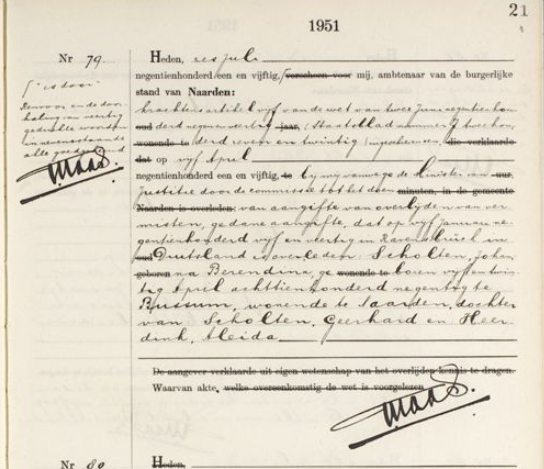 21
1951
Nr 79.
Heden, zes juli
negentienhonderd een en vijftig, verscheen voor mij, ambtenaar van de burgerlijke
stand van Naarden:
krachtens artikel vijf van de wet van twee juni negentienhon
oud derd negen en veertig jaar, (Staatsblad nummer J tweehon
wonende te derd zeven en twintig) ingeschreven, die verklaarde
dat op vijf April
negentienhonderd een en vijftig, te bij mij vanwege de Minister van uur
Justitie door de commissie tot het doen minuten, in de gemeente
Naarden is overleden: van aangifte van overlijden van ver
misten, gedane aangifte, dat op vijf Januari ne
gentienhonderd vijf en veertig in Ravensbrück in
oud Duitsland is overleden Scholten, Johan
geboren na Berendina, ge wonende te boren vijf en twin
tig April achttienhonderd negentig te
Bussum, wonende te Naarden, dochter
van Scholten, Geerhard en Heer
dink, Aleida.
De aangever verklaarde uit eigen wetenschap van het overlijden kennis te dragen.
Waarvan akte, welke overeenkomstig de wet is voorgelezen
Maas.
haling van veertig
gedrukte woorden
in nevenstaande
akte goedgekeurd
Maas.
Nr 80
Heden,